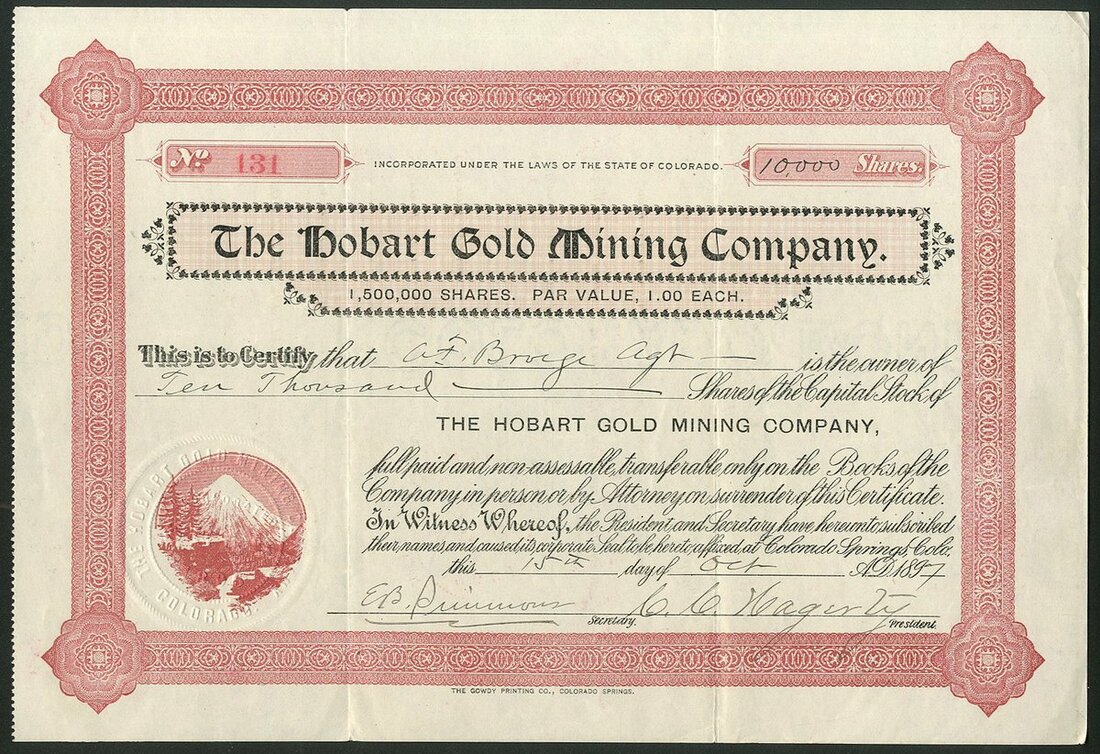 No. 131
INCORPORATED UNDER THE LAWS OF THE STATE OF COLORADO.
10,000 Shares.
The Hobart Gold Mining Company.
1,500,000 SHARES. PAR VALUE, 1.00 EACH.
This is to Certify that Agt is the owner of
Ten Thousand Shares of the Capital Stock of
THE HOBART GOLD MINING COMPANY,
full paid and non-assessable, transferable only on the Books of the
Company in person or by Attorney on surrender of this Certificate.
In Witness Whereof, the President and Secretary have hereunto subscribed
their names, and caused its corporate Seal to be hereto affixed at Colorado Springs, Colo.
this 15th day of Oct A.D. 1897
E.B. Simmons Secretary. C. C. Hagerty President.
THE HOBART GOLD MINING
COLORADO
THE GOWDY PRINTING CO., COLORADO SPRINGS.